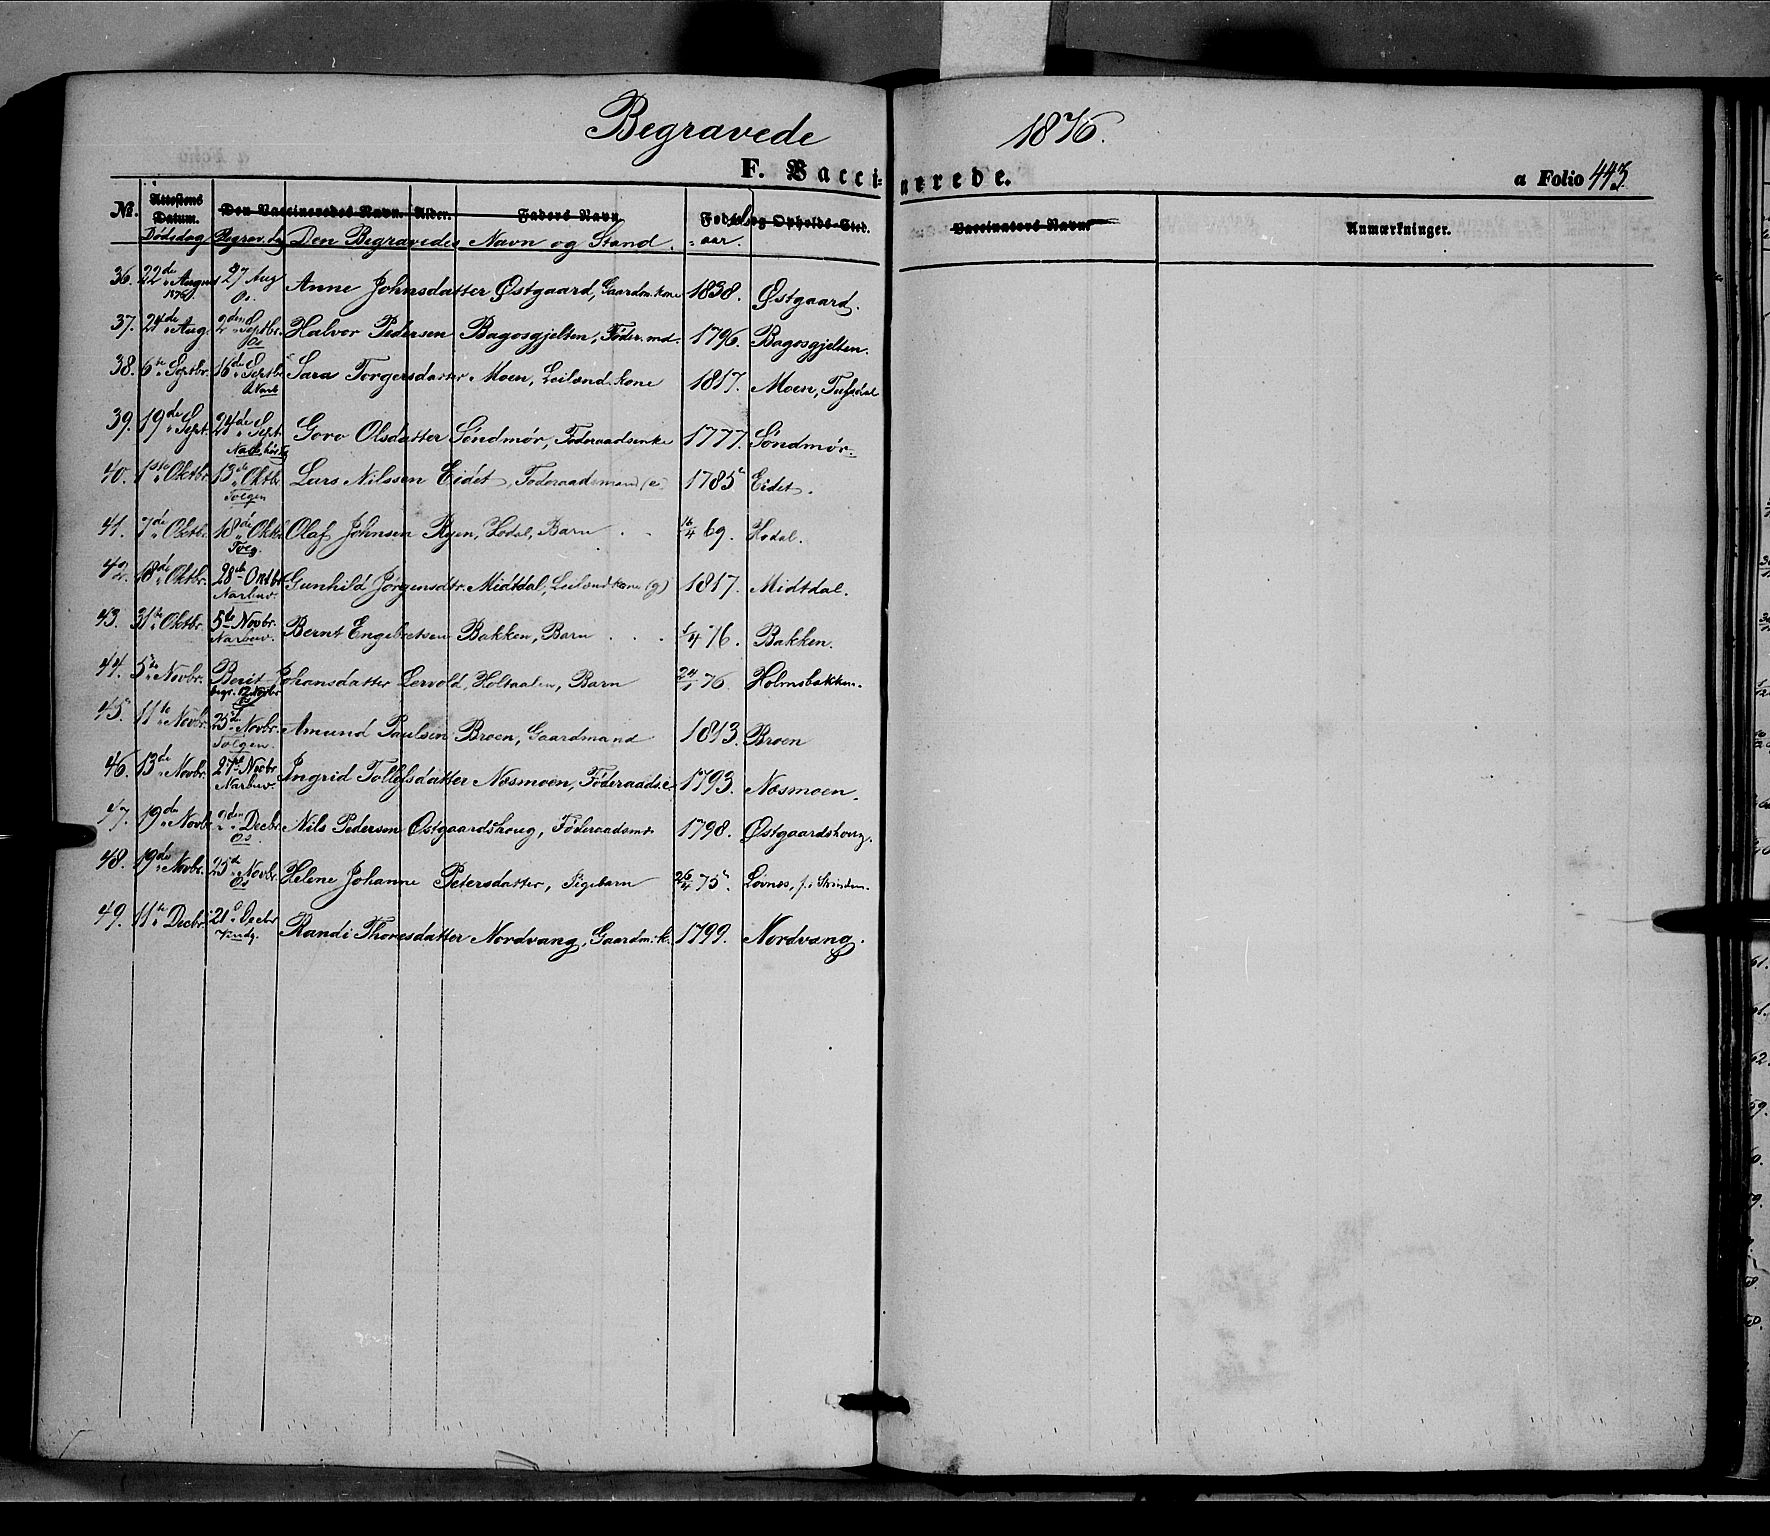 Begravede 1876.
F. Vaccinerede. a Folio 443.
No. Attestens Datum. Den Vaccineredes Navn. Alder. Faders Navn Føde- og Opholds-Sted. Vaccinateurs Navn. Anmærkninger.
Dødsdag Begrav.dg Den Begravedes Navn og Stand. aar.
36. 22de August 1876 27 Aug Os. Anne Johnsdatter Østgaard, Gaardm. kone 1838. Østgaard.
37. 24de Aug. 2den Septbr. Os Halvor Pedersen Bagosgjelten, Føder. md. 1796. Bagosgjelten.
38. 6te Septbr. 16de Septbr. Sara Torgersdatter Moen, Leilænd. kone 1817. Moen, Tufsdal
39. 19de Sept. 24de Sept. Goro Olsdatter Søndmør, Føderaadsenke 1777. Søndmør.
40. 1ste Oktbr. 13de Oktbr Tolgen Lars Nilssen Eidet, Føderaadsmand (e) 1785 Eidet.
41. 7de Oktbr. 18de Oktb. Tolg. Olaf Johnsen Ryen, Hodal, Barn 16/4 69. Hodal.
42. 18de Oktbr. 28de Oktbr Narbuv. Gunhild Jørgensdtr. Midtdal, Leilændkone (g) 1817. Midtdal.
43. 31te Oktbr. 5te Novbr. Narbuv. Bernt Engebretsen Bakken, Barn 1/4 76. Bakken.
44. 5te Novbr. Berit Johansdatter Lervold, Holtaalen, Barn 24/1 76. Holmsbakken.
begr. 12 Novbr Os
45. 11te Novbr. 25d Novbr. Tolgen. Amund Paulsen Broen, Gaardmand 1813. Broen
46. 13de Novbr. 27d Novbr Narbuv. Ingrid Tollefsdatter Næsmoen, Føderaads.e. 1793. Næsmoen.
47. 19de Novbr. 2den Decbr. Os. Nils Pedersen Østgaardshoug, Føderaadsm. 1798. Østgaardshoug.
48. 19de Novbr. 25d Novbr. Os Helene Johanne Petersdatter, Pigebarn 26/4 75. Løvnes, f. i Strinden.
49. 11te Decbr. 21d Decbr Randi Thoresdatter Nordvang, Gaardm. k. 1799. Nordvang.